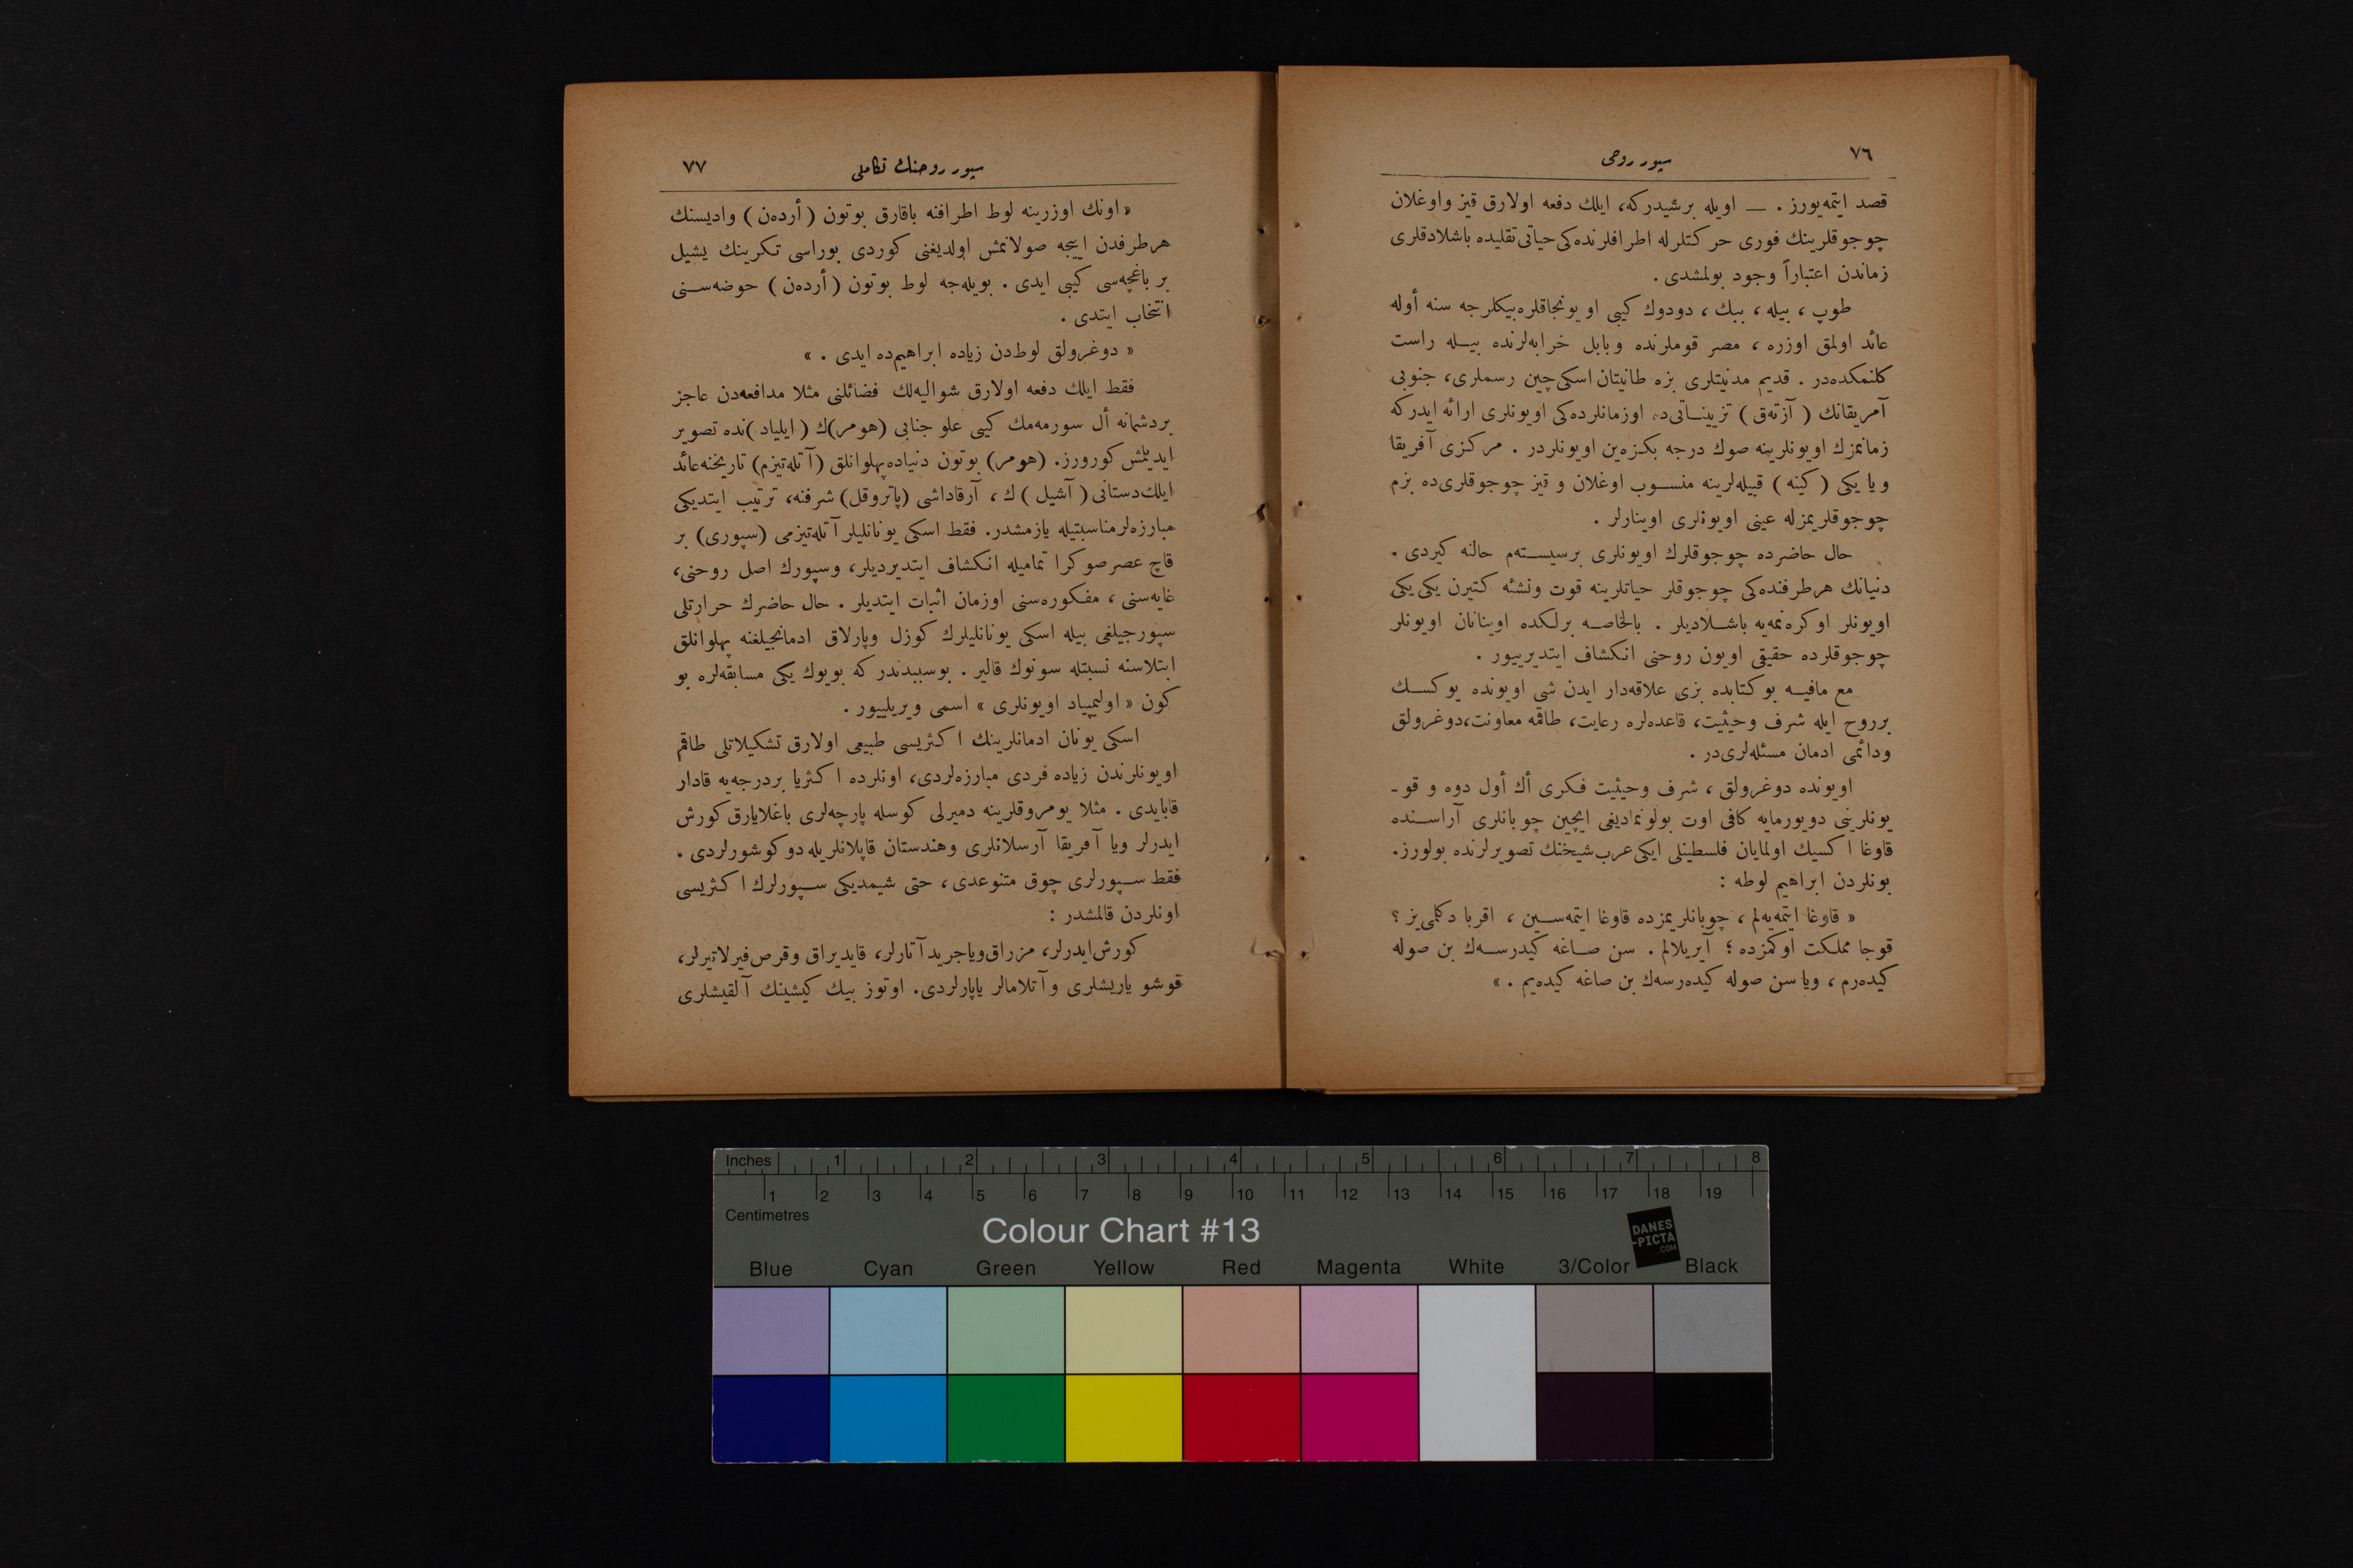 ٧٦
سپور روحی
قصد ايتمه‌يورز . — اويله برشيدركه، ايلك دفعه اولارق قيز واوغلان
چوجوقلرينك فوری حركتلرله اطرافلرنده‌كی حياتی تقليده باشلادقلری
زماندن اعتباراً وجود بولمشدی .
طوپ ، بيله ، ببك ، دودوك كيبی اويونجاقلره بيكلرجه سنه أوله
عائد اولمق اوزره ، مصر قوملرنده وبابل خرابه‌لرنده بيله راست
كلنمكده‌در . قديم مدنيتلری بزه طانيتان اسكی چين رسملری، جنوبی
آمريقانك ( آزته‌ق ) تزييناتی‌ده اوزمانلرده‌كی اويونلری ارائه ايدركه
زمانمزك اويونلرينه صوك درجه بكزه‌ين اويونلردر . مركزی آفريقا
ويا يكی ( كينه ) قبيله‌لرينه منسوب اوغلان و قيز چوجوقلری‌ده بزم
چوجوقلريمزله عينی اويونلری اوينارلر .
حال حاضرده چوجوقلرك اويونلری برسيسته‌م حالنه كيردی .
دنيانك هرطرفنده‌كی چوجوقلر حياتلرينه قوت ونشئه كتيرن يكی يكی
اويونلر اوكره‌نمه‌يه باشلاديلر . بالخاصه برلكده اوينانان اويونلر
چوجوقلرده حقيقی اويون روحنی انكشاف ايتديرييور .
مع مافيه بوكتابده بزی علاقه‌دار ايدن شی اويونده يوكسك
برروح ايله شرف وحيثيت، قاعده‌لره رعايت، طاقمه معاونت، دوغرولق
ودائمی ادمان مسئله‌لری‌در .
اويونده دوغرولق ، شرف وحيثيت فكری أك أول دوه و قو-
يونلرينی دويورمايه كافی اوت بولونماديغی ايچين چوبانلری آراسنده
قاوغا اكسيك اولمايان فلسطينلی ايكی عرب شيخنك تصويرلرنده بولورز.
بونلردن ابراهيم لوطه :
« قاوغا ايتمه‌يه‌لم ، چوبانلريمزده قاوغا ايتمه‌سين ، اقربا دكلمی‌يز ؟
قوجا مملكت اوكمزده ؛ آيريلالم . سن صاغه كيدرسه‌ك بن صوله
كيده‌رم ، وياسن صوله كيده‌رسه‌ك بن صاغه كيده‌يم . »
سپور روحنك تكاملی
٧٧
« اونك اوزرينه لوط اطرافنه باقارق بوتون ( أرده‌ن ) واديسنك
هرطرفدن اييجه صولانمش اولديغنی كوردی بوراسی تكرينك يشيل
بر باغچه‌سی كيبی ايدی . بويله‌جه لوط بوتون ( أرده‌ن ) حوضه‌سنی
انتخاب ايتدی .
« دوغرولق لوط‌دن زياده ابراهيم‌ده ايدی . »
فقط ايلك دفعه اولارق شواليه‌لك فضائلنی مثلا مدافعه‌دن عاجز
بردشمانه أل سورمه‌مك كيبی علو جنابی (هومر)ك ( ايلياد )نده تصوير
ايديلمش كورورز. (هومر) بوتون دنياده پهلوانلق (آتله‌تيزم) تاريخنه عائد
ايلك دستانی ( آشيل ) ك ، آرقاداشی (پاتروقل) شرفنه، ترتيب ايتديكی
مبارزه‌لرمناسبتيله يازمشدر. فقط اسكی يونانليلر آتله‌تيزمی (سپوری) بر
قاچ عصر صوكرا تماميله انكشاف ايتديرديلر، وسپورك اصل روحنی،
غايه‌سنی ، مفكوره‌سنی اوزمان اثبات ايتديلر . حال حاضرك حرارتلی
سپورجيلغی بيله اسكی يونانليلرك كوزل وپارلاق ادمانجيلغنه پهلوانلق
ابتلاسنه نسبتله سونوك قالير . بوسببدندركه بويوك يكی مسابقه‌لره بو
كون « اوليمپياد اويونلری » اسمی ويريلييور .
اسكی يونان ادمانلرينك اكثريسی طبيعی اولارق تشكيلاتلی طاقم
اويونلرندن زياده فردی مبارزه‌لردی، اونلرده اكثريا بردرجه‌يه قادار
قابايدی . مثلا يومروقلرينه دميرلی كوسله پارچه‌لری باغلايارق كورش
ايدرلر ويا آفريقا آرسلانلری وهندستان قاپلانلريله دوكوشورلردی .
فقط سپورلری چوق متنوعدی، حتی شيمديكی سپورلرك اكثريسی
اونلردن قالمشدر :
كورش ايدرلر، مزراق وياجريد آتارلر، قايديراق وقرص فيرلاتيرلر،
قوشو ياريشلری وآتلامالر ياپارلردی. اوتوز بيك كيشينك آلقيشلری
Inches 1 2 3 4 5 6 7 8
1 2 3 4 5 6 7 8 9 10 11 12 13 14 15 16 17 18 19
Centimetres
Colour Chart #13
DANES
-PICTA
.COM
Blue Cyan Green Yellow Red Magenta White 3/Color Black